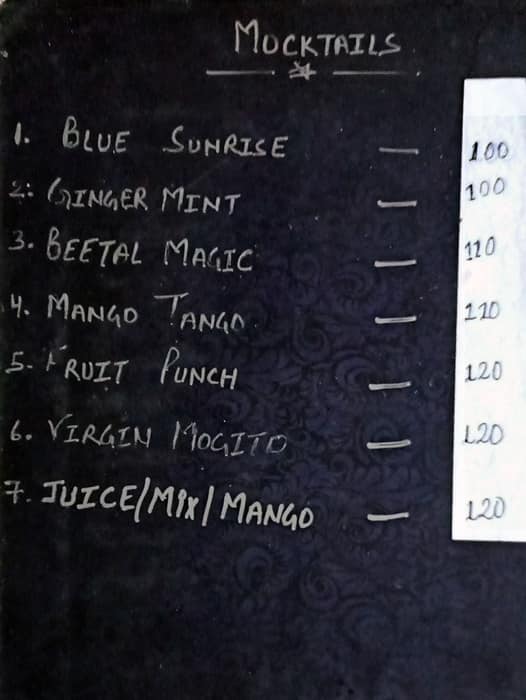 MOCKTAILS
1. BLUE SUNRISE — 100
2: GINGER MINT — 100
3. BEETAL MAGIC — 110
4. MANGO TANGO — 110
5. FRUIT PUNCH — 120
6. VIRGIN MOGITO — 120
7. JUICE/MIX/MANGO — 120